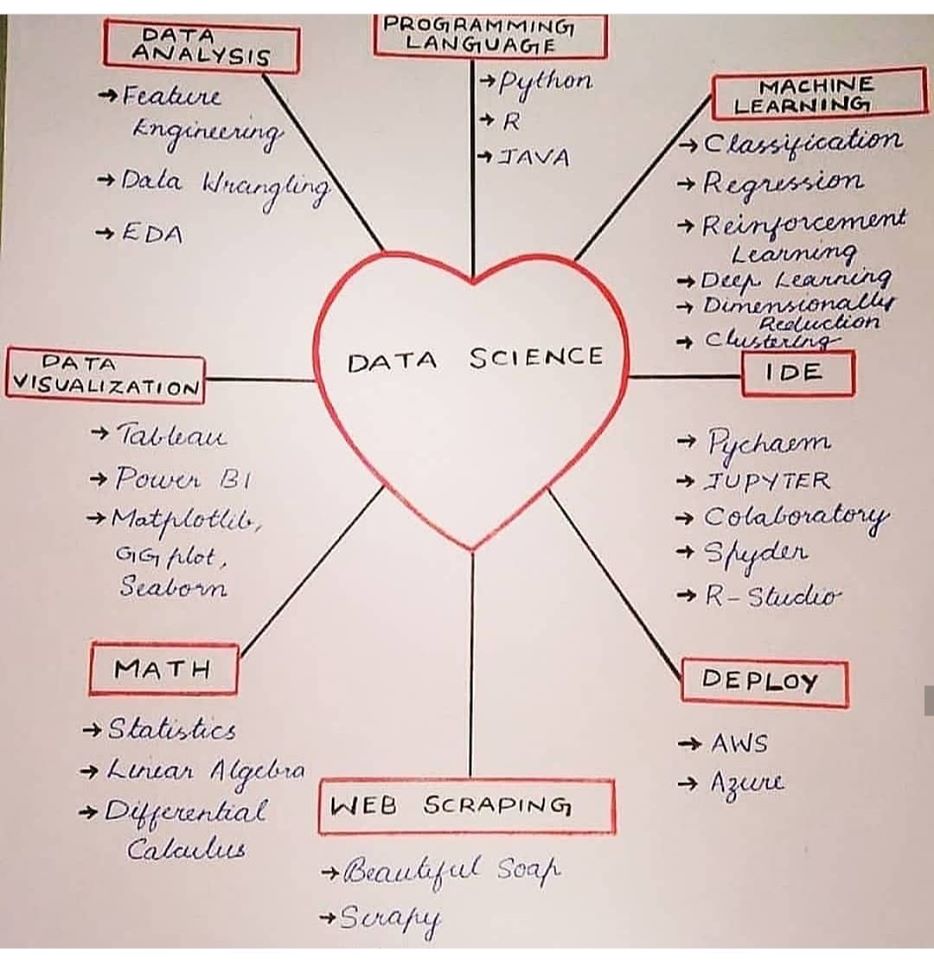 DATA
ANALYSIS
→ Feature
Engineering
→ Data Wrangling
→ EDA
PROGRAMMING
LANGUAGE
→ Python
→ R
→ JAVA
MACHINE
LEARNING
→ Classification
→ Regression
→ Reinforcement
Learning
→ Deep Learning
→ Dimensionally
Reduction
→ Clustering
DATA SCIENCE
DATA
VISUALIZATION
→ Tableau
→ Power BI
→ Matplotlib,
GG plot,
Seaborn
IDE
→ Pychaem
→ JUPYTER
→ Colaboratory
→ Spyder
→ R-Studio
MATH
→ Statistics
→ Linear Algebra
→ Differential
Calculus
WEB SCRAPING
→ Beautiful Soap
→ Scrapy
DEPLOY
→ AWS
→ Azure